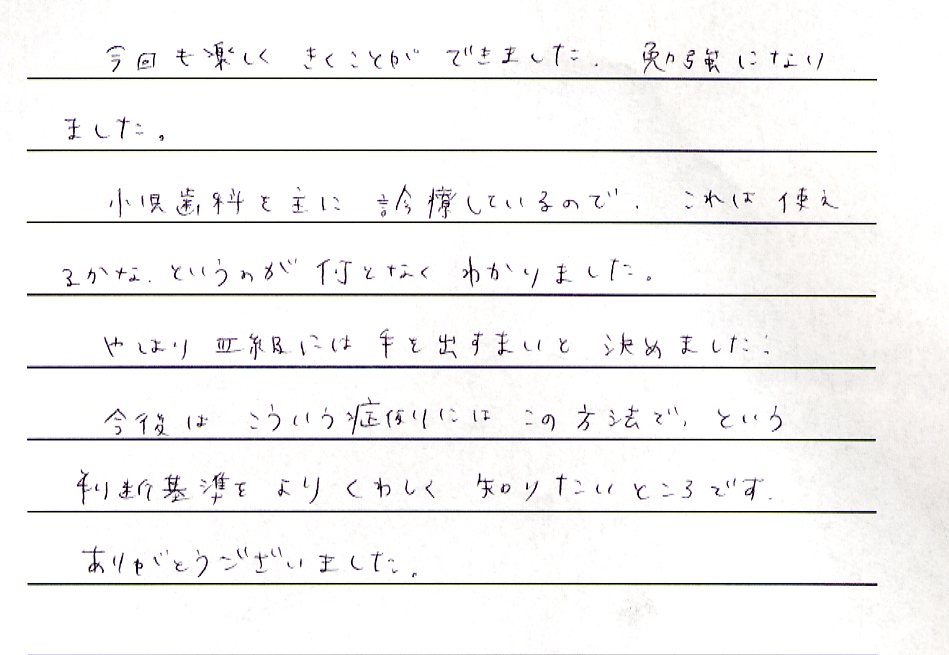 今回も楽しく きくことが できました. 勉強になり
ました。
小児歯科を主に 診療しているので. これは 使え
るかな. というのが 何となく わかりました。
やはり Ⅲ級には 手を出すまいと 決めました!
今後は こういう症例には この方法で, という
判断基準を よりくわしく 知りたいところです.
ありがとうございました.